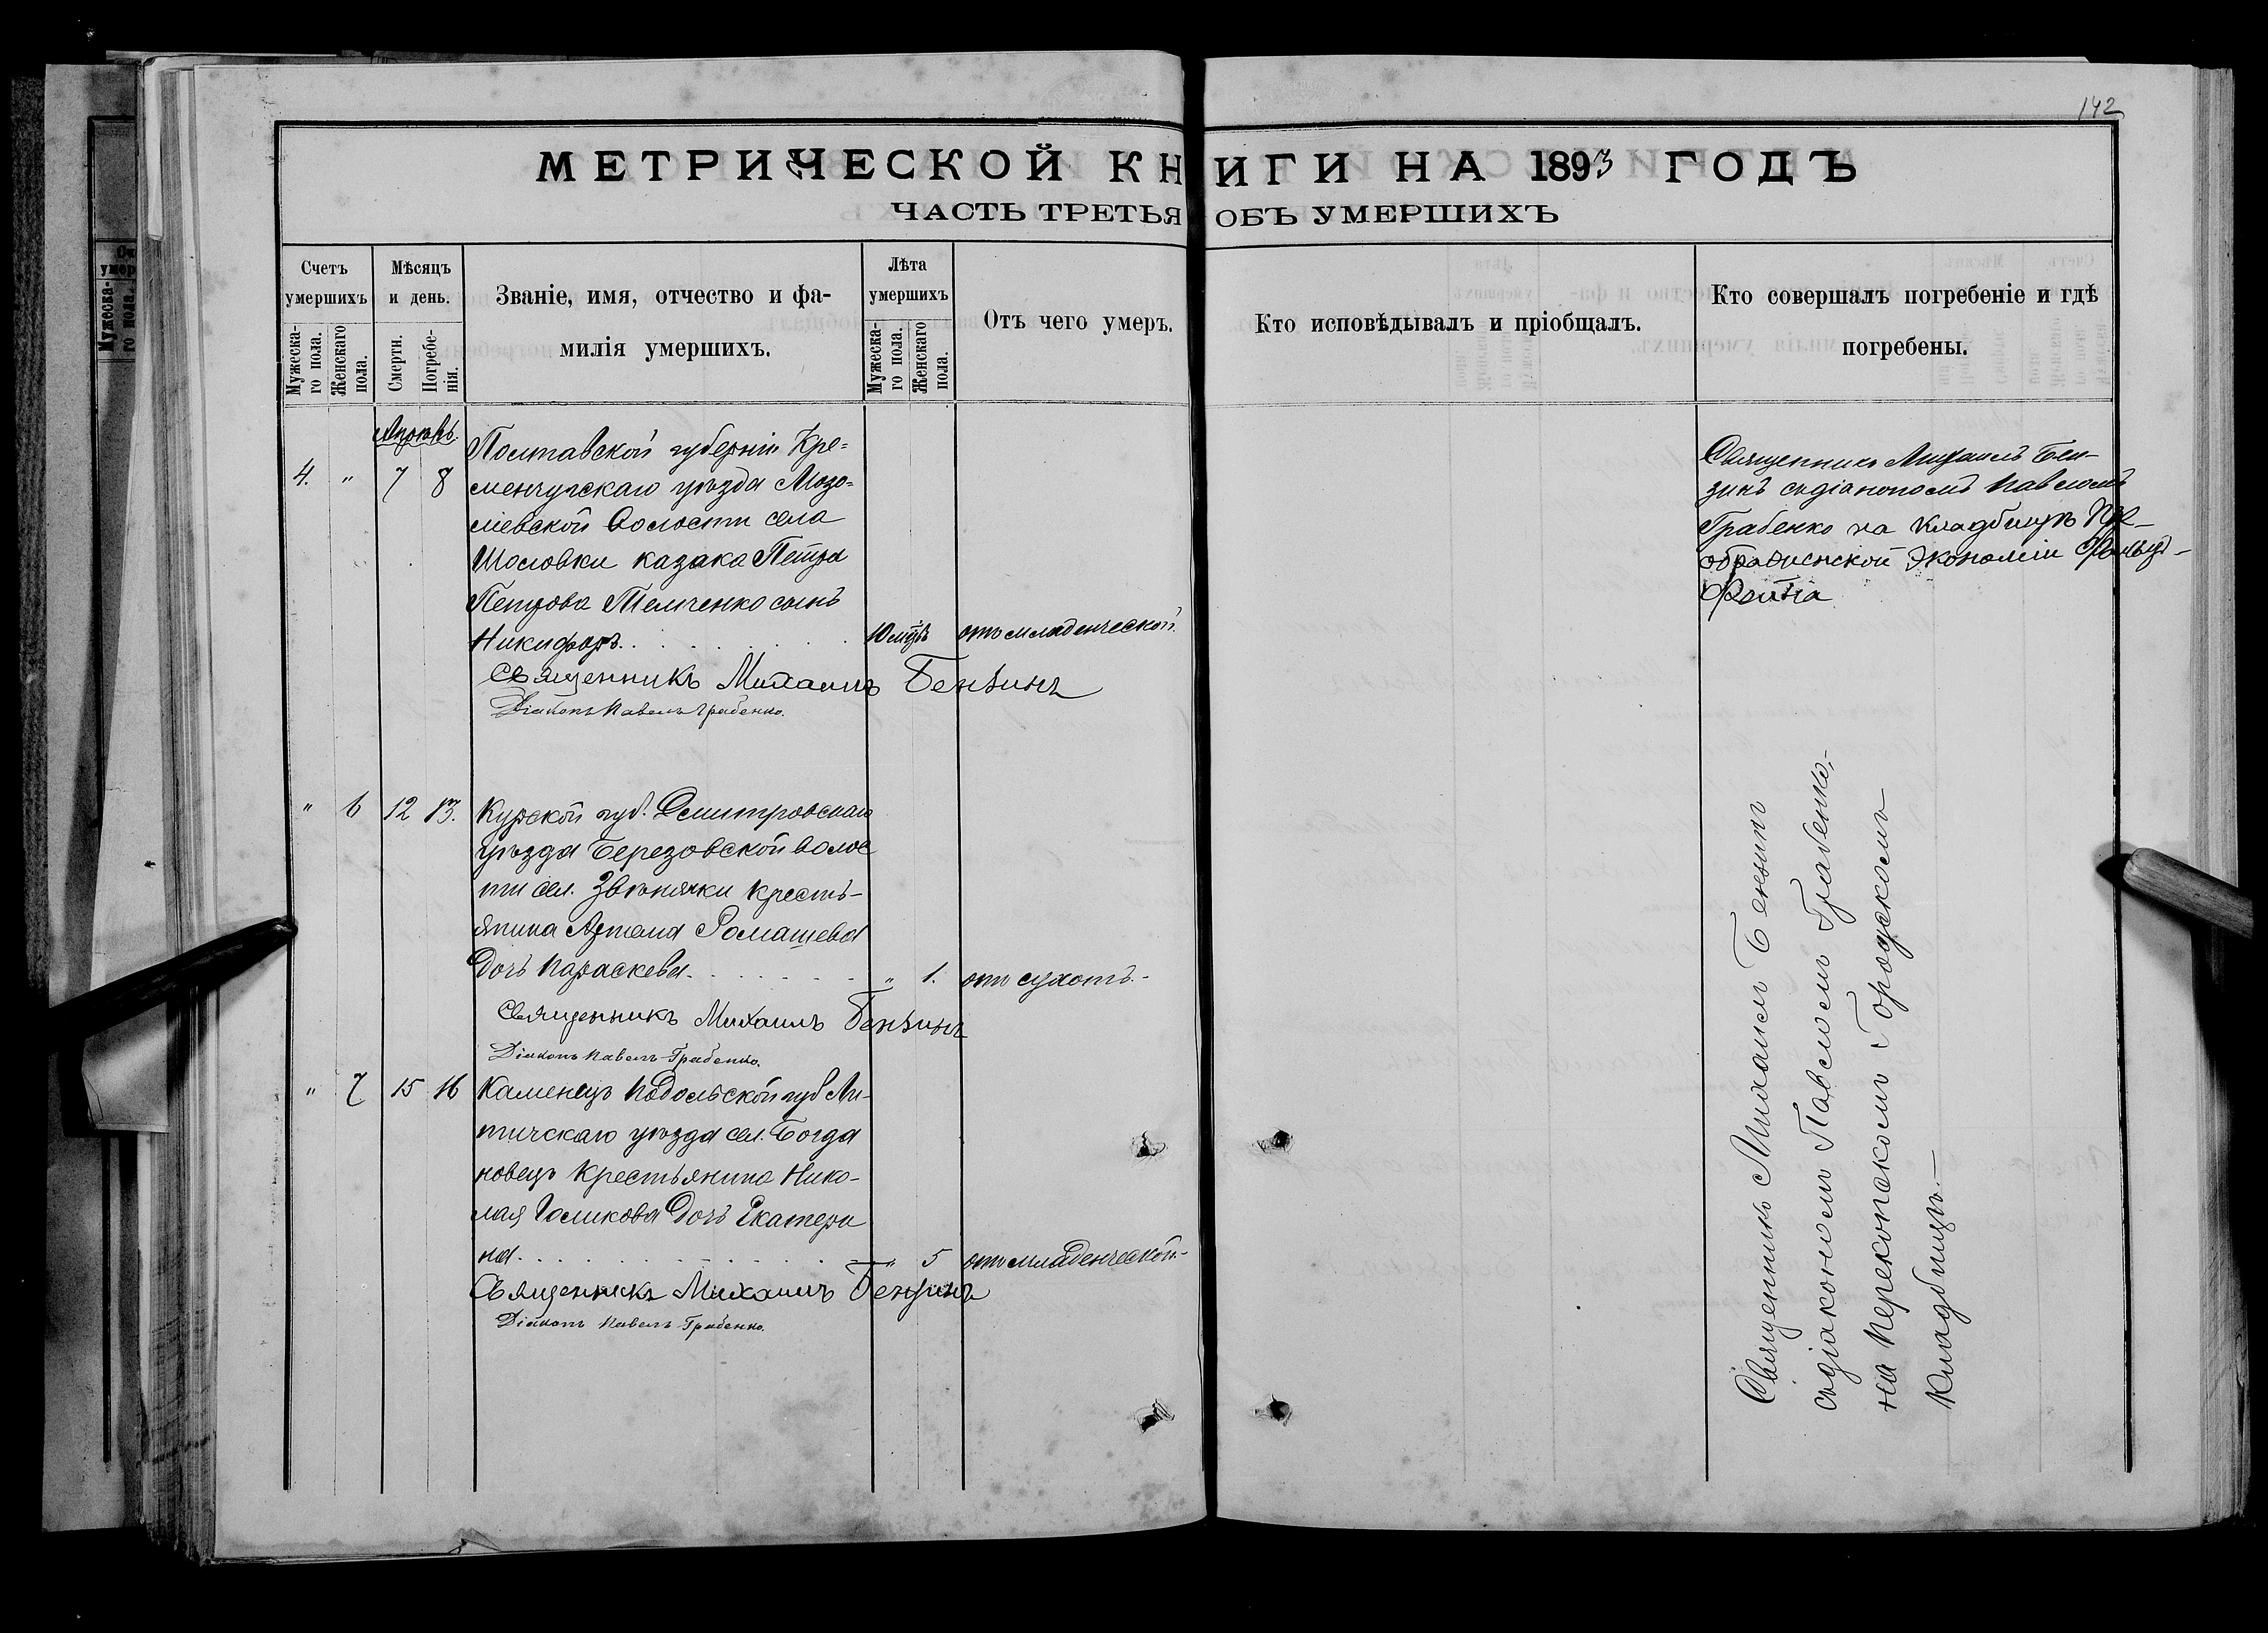 142
МЕТРИЧЕСКОЙ КНИГИ НА 1893 ГОДЪ
ЧАСТЬ ТРЕТЬЯ ОБЪ УМЕРШИХЪ
Счетъ умершихъ
Мужеска-го пола.
Женскаго пола.
Мѣсяцъ и день.
Смерти.
Погребе-нія.
Званіе, имя, отчество и фа-
милія умершихъ.
Лѣта умершихъ
Мужеска-го пола.
Женскаго пола.
Отъ чего умеръ.
Кто исповѣдывалъ и пріобщалъ.
Кто совершалъ погребеніе и гдѣ
погребены.
4. " 7 8
Полтавской губерніи Кре=
менчугскаго уѣзда Мозо=
лѣевской волости села
Шосовки казака Петра
Петрова Темченко сынъ
Никифоръ.
отъ младенческой.
Священникъ Михаилъ Бензинъ
Діаконъ Павелъ Грабенко.
Священникъ Михаилъ Бен-
зинъ съ діакономъ Павломъ
Грабенко на кладбищѣ Пре-
ображенской Экономіи Фальцъ-
Фейна
" 6 12 13.
Курской губ. Дмитровскаго
уѣзда Березовской волос
ти сел. Звѣнячки кресть-
янина Артема Ромашева
дочь Параскева.
" 1. отъ сухотъ.-
Священникъ Михаилъ Бензинъ
Діаконъ Павелъ Грабенко.
" 7 15 16
Каменецъ Подольской губ Ли-
тичскаго уѣзда сел. Богда
новецъ крестьянина Нико-
лая Голикова дочь Екатери
на.
" 5 отъ младенческой.-
Священникъ Михаилъ Бензинъ
Діаконъ Павелъ Грабенко.
Священникъ Михаилъ Бензинъ
съ діакономъ Павломъ Грабенко,-
на Перекопскомъ Городскомъ
кладбищѣ.-